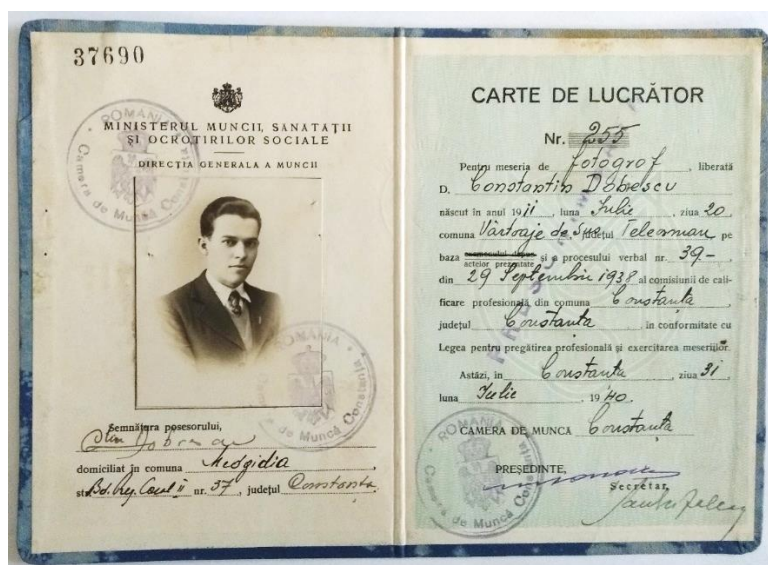 37690
MINISTERUL MUNCII, SANATAȚII
ȘI OCROTIRILOR SOCIALE
DIRECȚIA GENERALA A MUNCII
ROMANIA
Camera de Muncă Constanța
ROMANIA
de Muncă Constanța
Semnătura posesorului,
domiciliat în comuna Medgidia,
str. Bd. Reg. Carol II nr. 37, județul Constanta
CARTE DE LUCRĂTOR
Nr. 255
Pentru meseria de fotograf, liberată
D. Constantin Dobrescu
născut în anul 1911, luna Iulie, ziua 20,
comuna Vârtoaje de Sus județul Teleorman pe
baza examenului depus și a procesului verbal nr. 39-
actelor prezentate
din 29 Septembrie 1938 al comisiunii de cali-
ficare profesională, din comuna Constanta
județul Constanta în conformitate cu
Legea pentru pregătirea profesională și exercitarea meseriilor.
Astăzi, în Constanta, ziua 31,
luna Iulie, 1940.
CAMERA DE MUNCĂ Constanta
ROMANIA
Camera de Muncă
PREȘEDINTE,
Secretar,